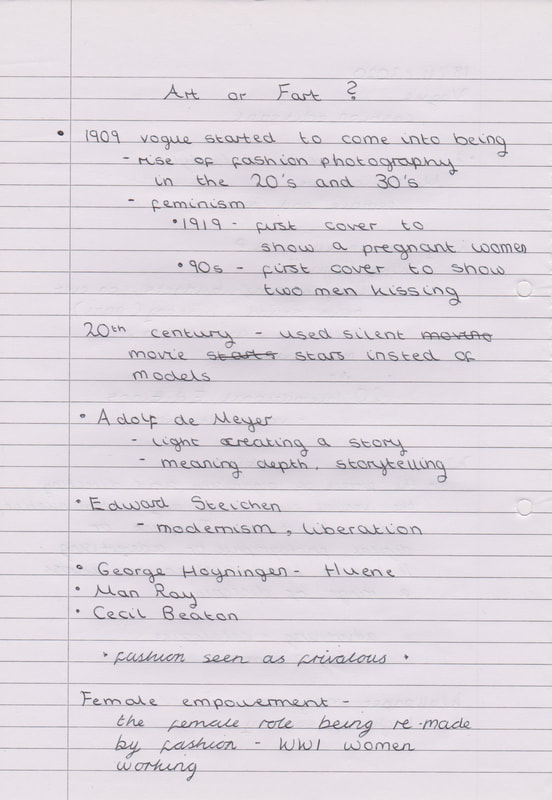 Art or Fart ?
• 1909 vogue started to come into being
- rise of fashion photography
in the 20's and 30's
- feminism
•1919 - first cover to
show a pregnant women
•90s - first cover to show
two men kissing
20th century - used silent moving
movie starts stars insted of
models
• Adolf de Meyer
- light creating a story
- meaning depth, storytelling
• Edward Steichen
- modernism, liberation
• George Hoyningen - Huene
• Man Ray
• Cecil Beaton
• fashion seen as frivalous •
Female empowerment -
the female role being re-made
by fashion - WWI women
working